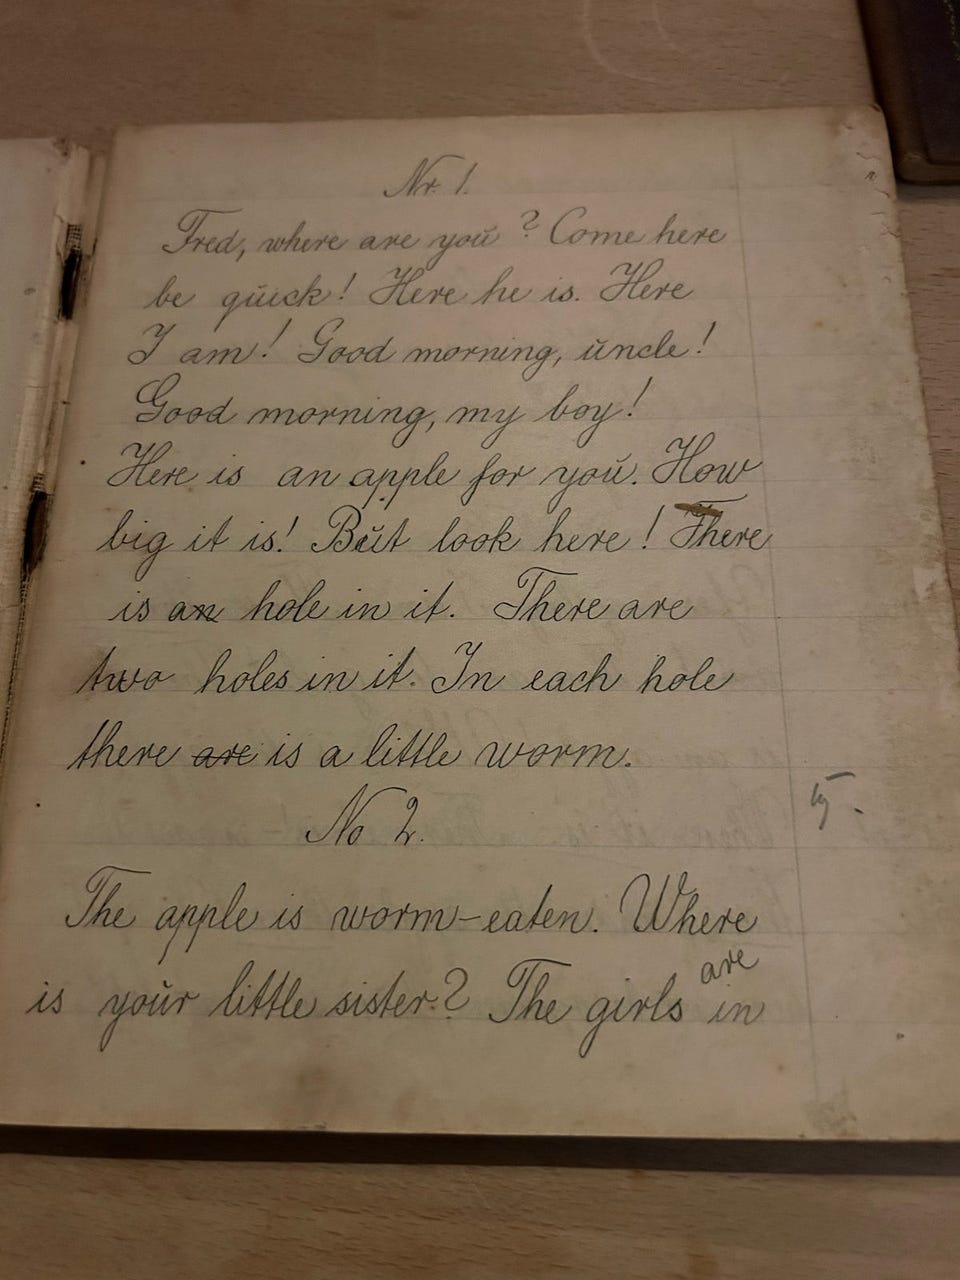 Nr. 1.
Fred, where are yoŭ? Come here
be qŭick! Here he is. Here
I am! Good morning, ŭncle!
Good morning, my boy!
Here is an apple for yoŭ. How
big it is! Bŭt look here! There
is a̶n̶ hole in it. There are
two holes in it. In each hole
there a̶r̶e̶ is a little worm.
No 2.
The apple is worm-eaten. Where
is yoŭr little sister? The girls are in